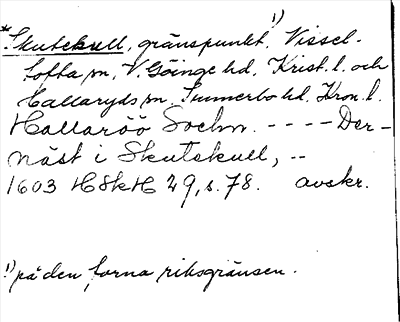 *Skutskull, gränspunkt!), Vissel-
tofta sn, V. Göinge hd, Krist. l. och
Hallaryds sn Sunnerbo hd, Kron. l.
Hallaröö Sochn. ---- Der-
näst i Skutskull, --
1603 HSkH 29, s. 78. avskr.
!) på den forna riksgränsen.